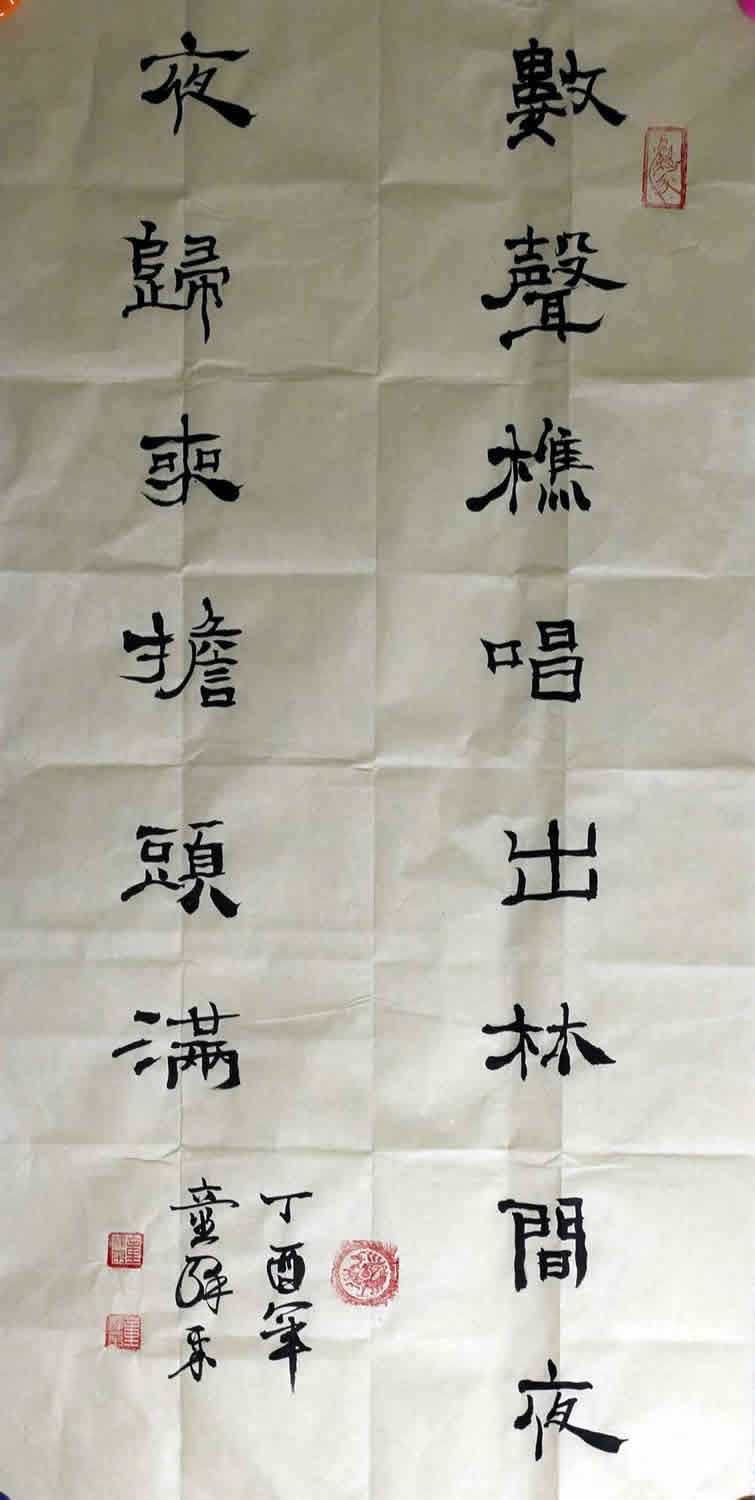 數聲樵唱出林間夜
夜歸來擔頭滿
丁酉年
童